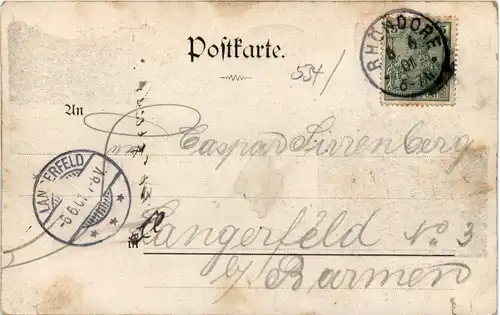 Postkarte.
554/
RHÖNDORF
6 01
An
Caspar Sirrenberg
LANGERFELD
6.6.01. 7-8V.
in
Langerfeld No 3
b/ Barmen